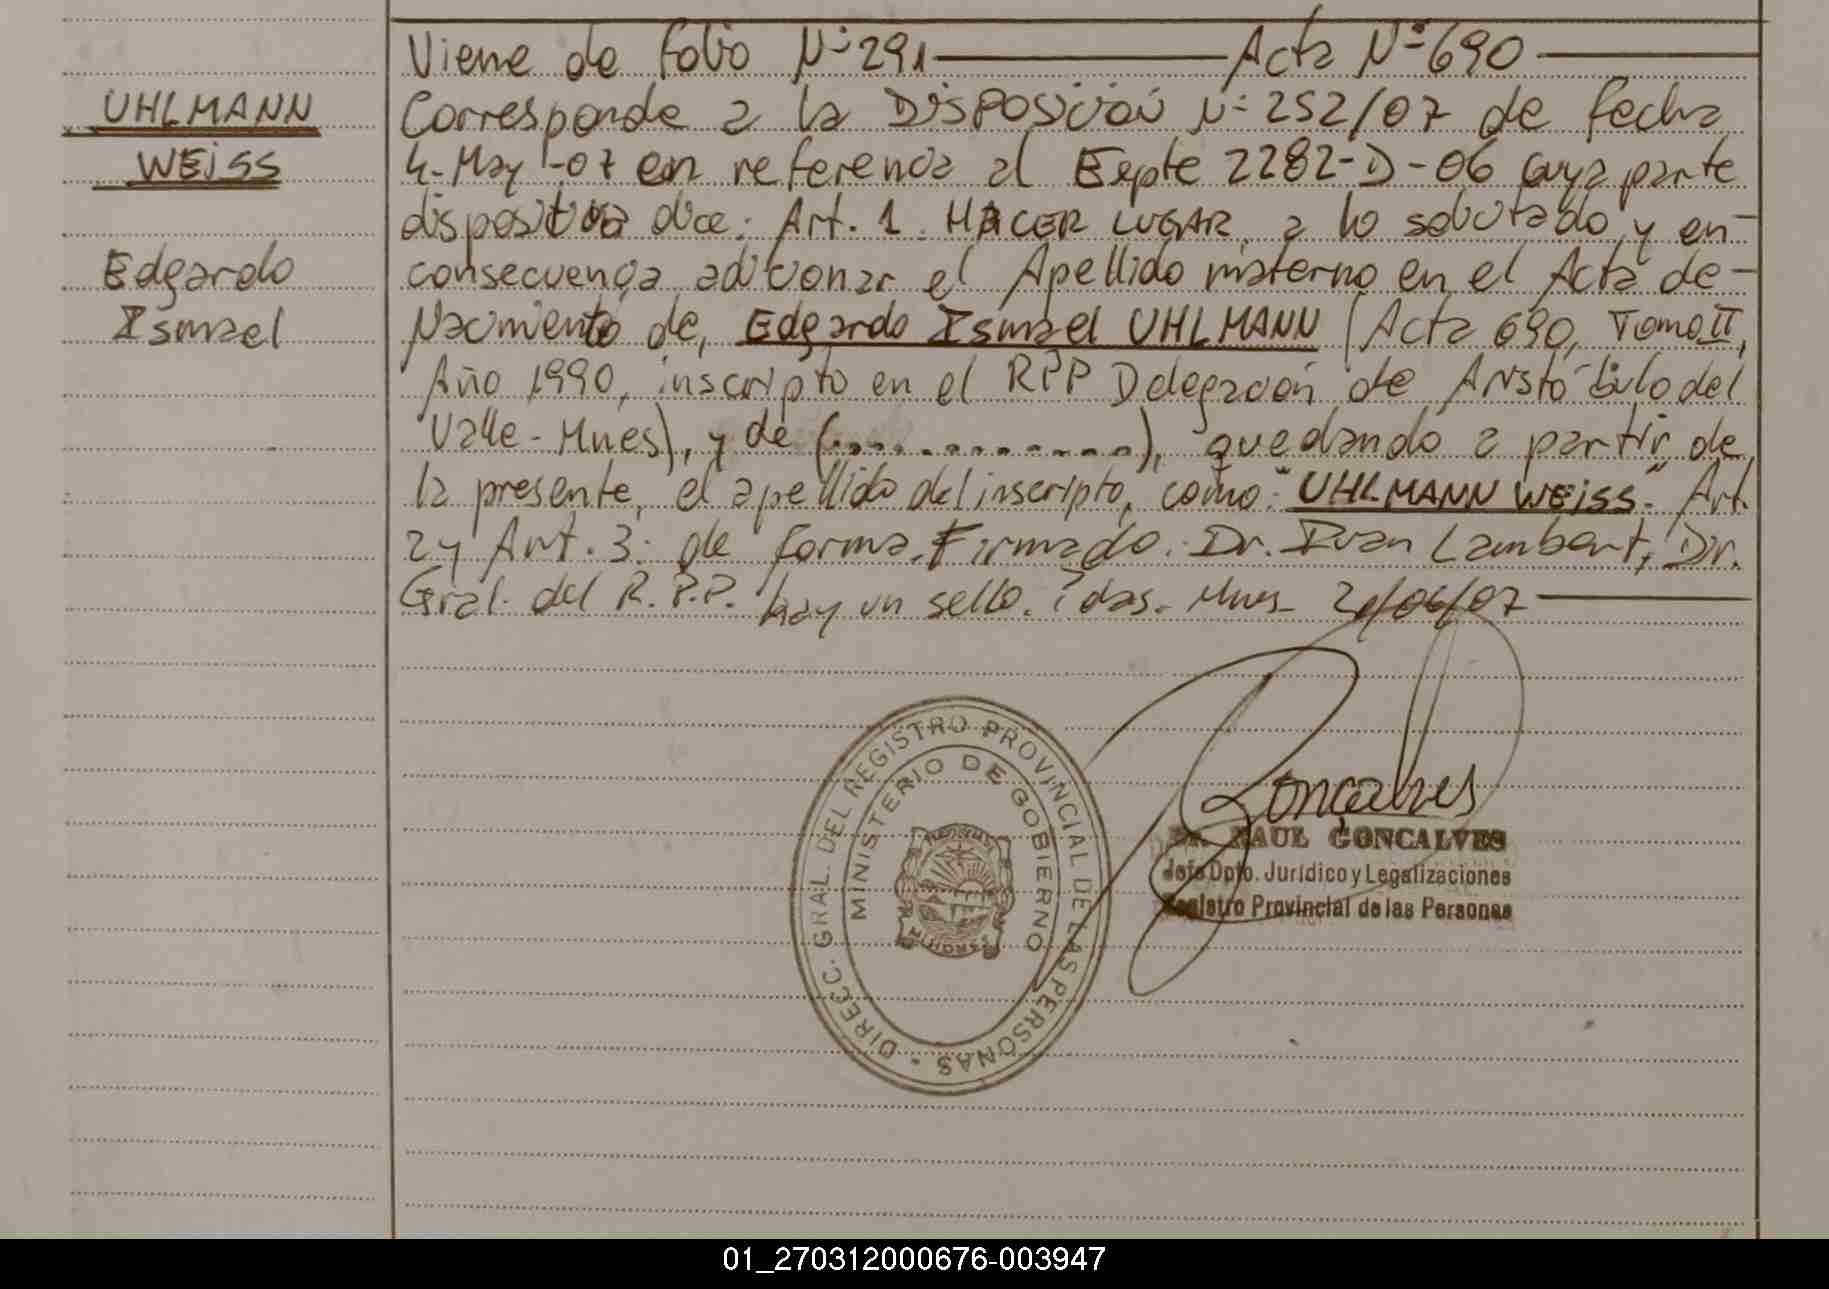 UHLMANN
WEiSS
Edgardo
Ismael
Viene de folio Nº 291 Acta Nº 690
Corresponde a la Disposición Nº 252/07 de fecha
4-May-07 en referencia al Expte 2282-D-06 cuya parte
dispositiva dice: Art. 1. HACER LUGAR, a lo solicitado y en
consecuencia adicionar el Apellido materno en el Acta de
Nacimiento de, Edgardo Ismael UHLMANN (Acta 690, Tomo II,
Año 1990, inscripto en el RPP Delegación de Aristóbulo del
Valle-Mnes), y de (............), quedando a partir de
la presente, el apellido del inscripto, como: "UHLMANN WEiSS". Art.
2 y Art. 3: de forma. Firmado. Dr. Ivan Lambert, Dir.
Gral. del R.P.P. hay un sello. Pdas. Mnes
DIRECC. GRAL. DEL REGISTRO PROVINCIAL DE LAS PERSONAS -
MINISTERIO DE GOBIERNO
Goncalves
Dr. RAUL GONCALVES
Jefe Dpto. Jurídico y Legalizaciones
Registro Provincial de las Personas
01_270312000676-003947